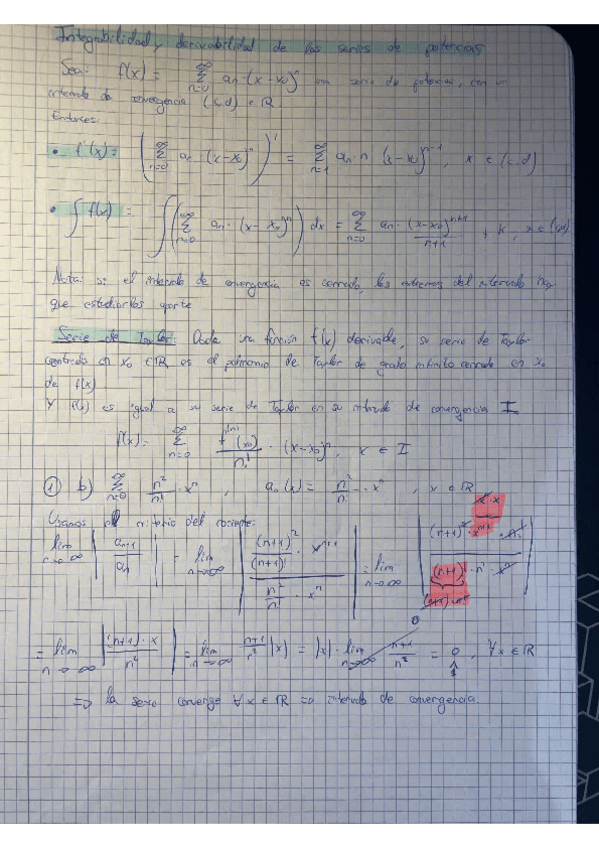 Integrabilidad y derivabilidad de las series de potencias
Sea: f(x) = ∞ Σ n=0 an · (x-x₀)ⁿ una serie de potencias, con un
intervalo de convergencia (c,d) ∈ ℝ.
Entonces:
• f'(x) = ( ∞ Σ n=0 an (x-x₀)ⁿ )' = ∞ Σ n=1 an · n (x-x₀)ⁿ⁻¹, x ∈ (c,d)
• ∫ f(x) = ∫ ( ∞ Σ n=0 an · (x-x₀)ⁿ ) dx = ∞ Σ n=0 an · (x-x₀)ⁿ⁺¹ / n+1 + k, x ∈ (c,d)
Nota: si el intervalo de convergencia es cerrado, los extremos del intervalo hay
que estudiarlos aparte
Serie de Taylor: Dada una función f(x) derivable, su serie de Taylor
centrada en x₀ ∈ ℝ es el polinomio de Taylor de grado infinito centrado en x₀
de f(x)
Y f(x) es igual a su serie de Taylor en su intervalo de convergencia I
f(x) = ∞ Σ n=0 f⁽ⁿ⁾(x₀) / n! · (x-x₀)ⁿ, x ∈ I
① b) ∞ Σ n=0 n²/n! · xⁿ , an(x) = n²/n! · xⁿ , x ∈ ℝ
Usamos el criterio del cociente:
lim n→∞ | an+1 / an | = lim n→∞ | (n+1)²/(n+1)! · xⁿ⁺¹ / n²/n! · xⁿ | = lim n→∞ | (n+1)² · xⁿ⁺¹ · n! / (n+1)! · n² · xⁿ |
xⁿ · x
(n+1) · n!
= lim n→∞ | (n+1) · x / n² | = lim n→∞ n+1/n² |x| = |x| · lim n→∞ n+1/n² = 0, ∀x ∈ ℝ
0
1
⇒ la serie converge ∀x ∈ ℝ ⇒ intervalo de convergencia.